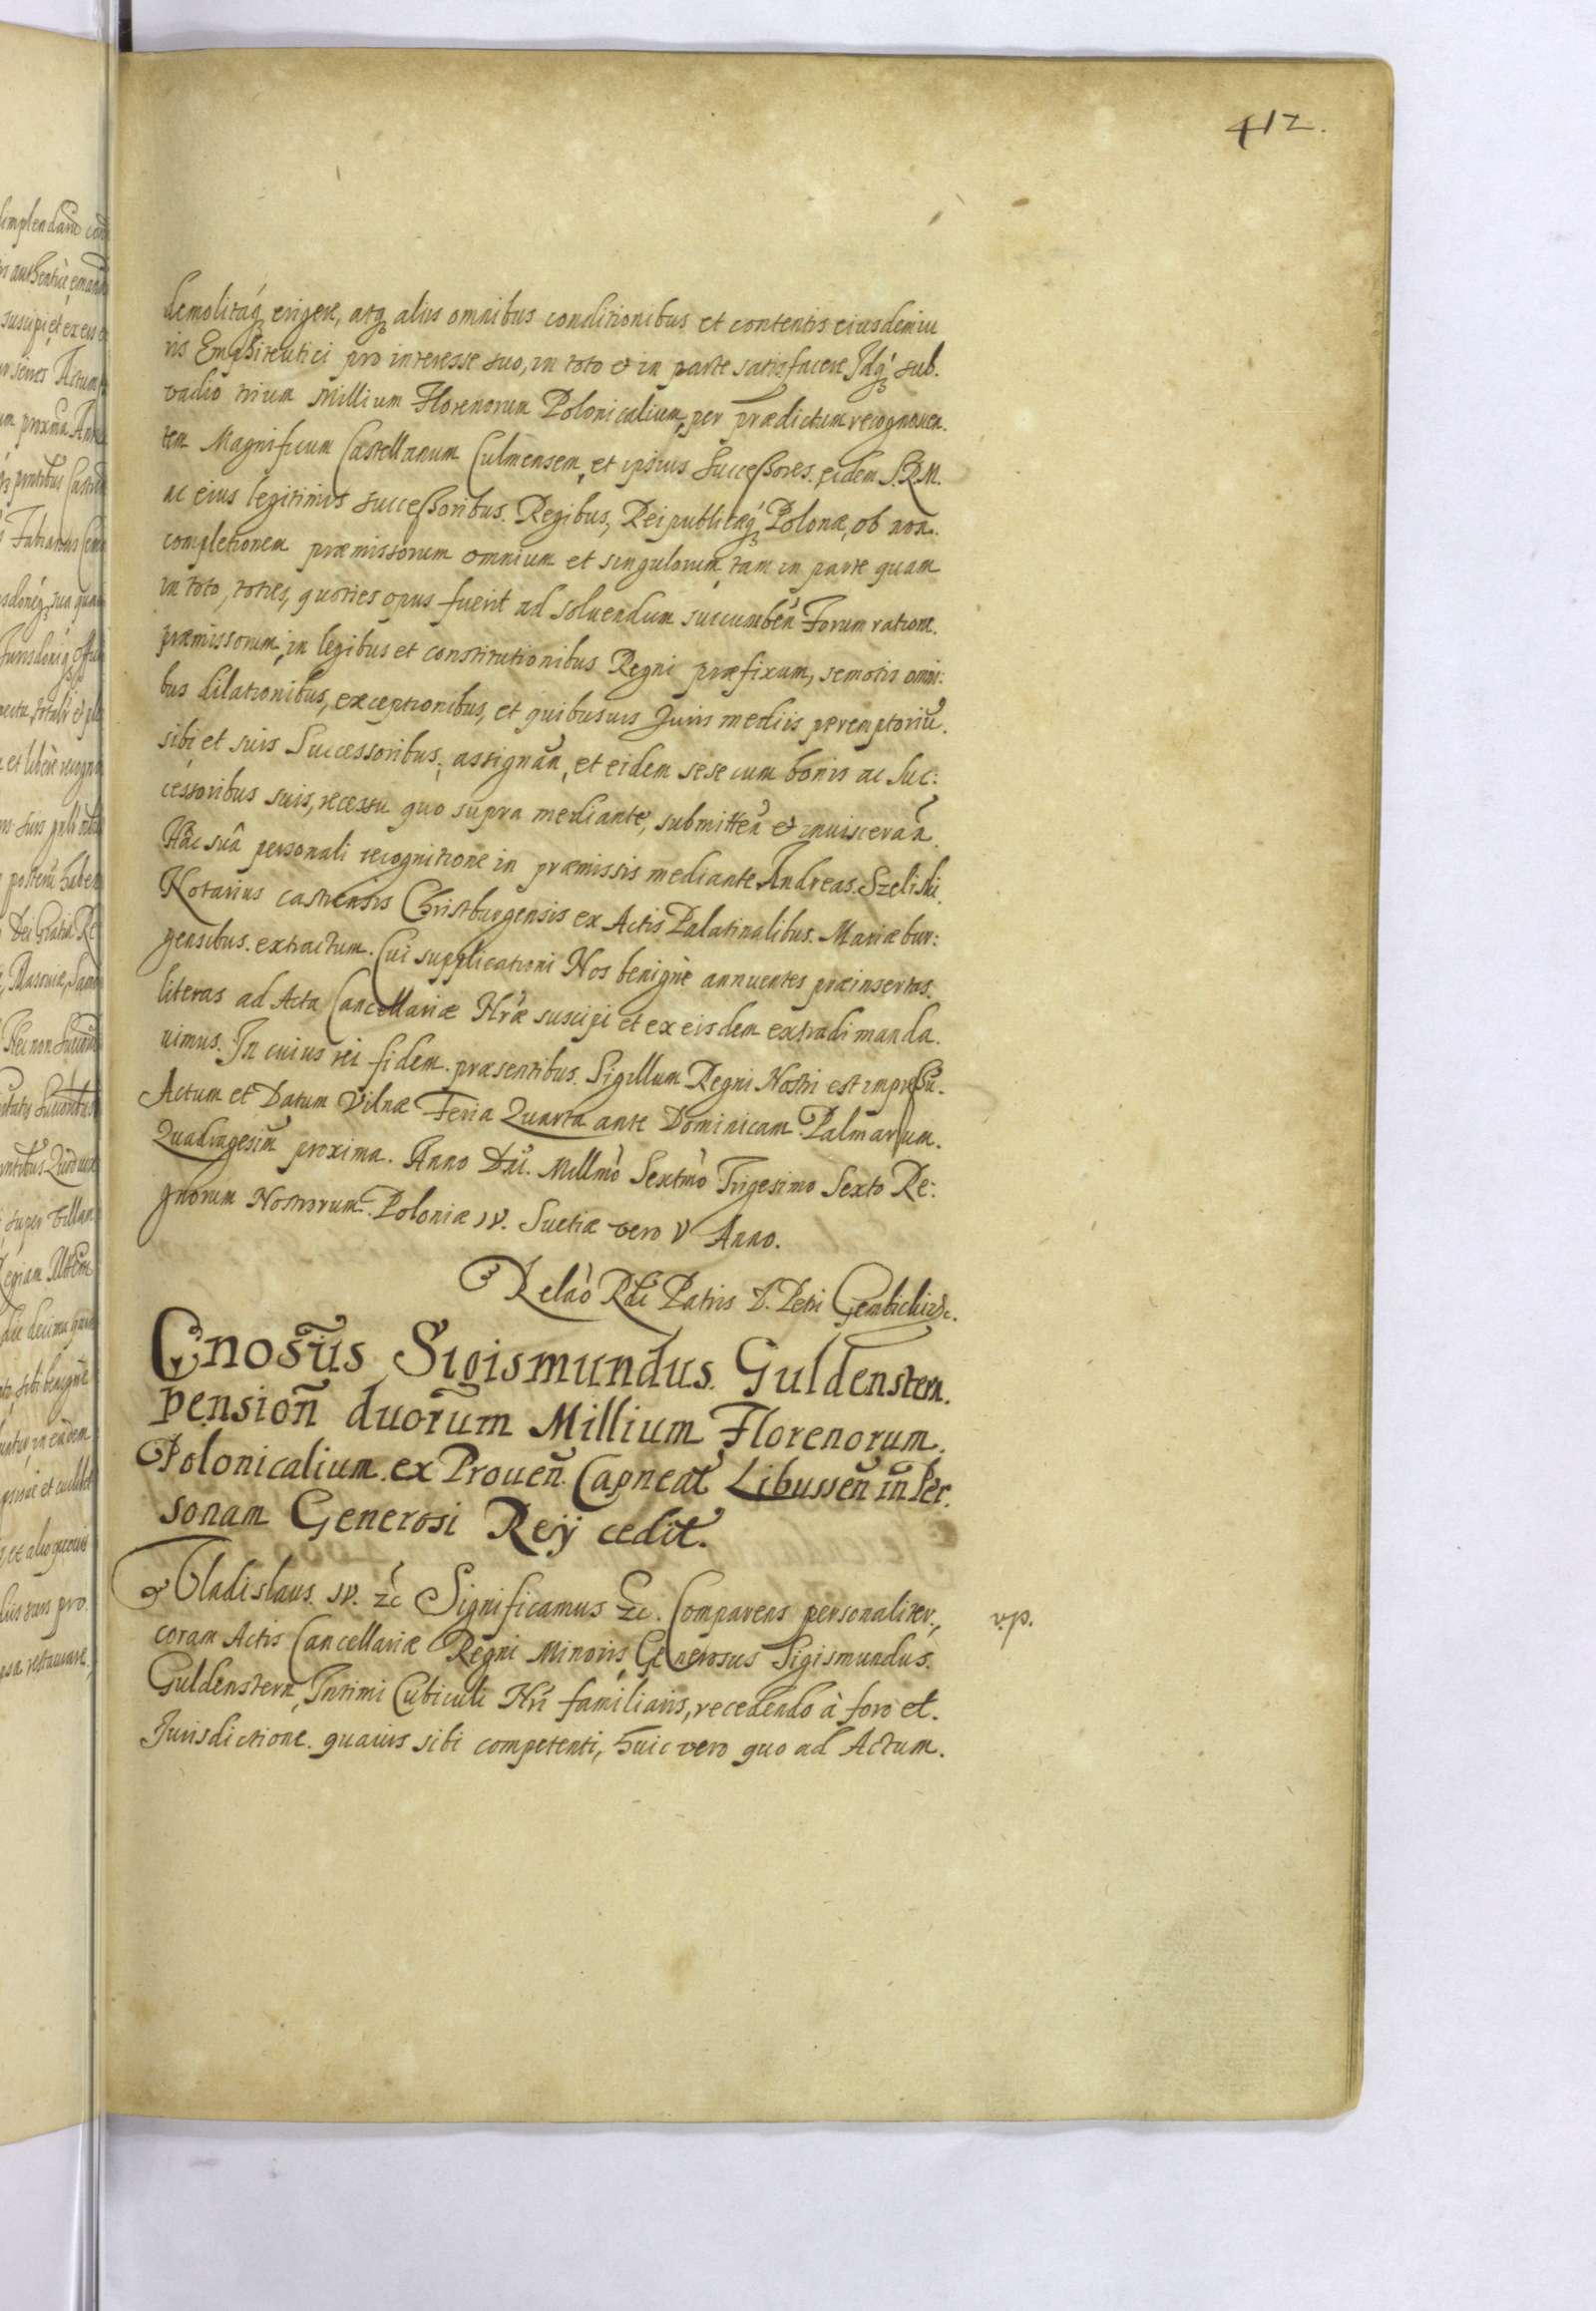 412.
demolitaq́ erigere, atq́ aliis omnibus conditionibus et contentis eiusdem iu
ris Emphiteutici pro interesse suo, in toto et in parte satisfacere Idq́ sub.
vadio trium Millium Florenorum Polonicalium, per prædictum recognoscen.
tem Magnificum Castellanum Culmensem, et ipsius Successores. eidem S.R.M.
ac eius legitimis successoribus. Regibus, Reipublicæq́ Polonæ, ob non.
completionem præmissorum omnium et singulorum, tam in parte quam
in toto, toties, quoties opus fuerit ad soluendum succumbeñ Forum ratione.
præmissorum, in legibus et constitutionibus Regni præfixum, semotis omni:
bus dilationibus, exceptionibus, et quibusuis Juris mediis peremptoriũ.
sibi et suis Successoribus; assignañ, et eidem sese cum bonis ac Suc:
cessoribus suis, recessu quo supra mediante, submitteñ et inuiscerañ.
Hâc suâ personali recognitione in præmissis mediante Andreas. Szeliski.
Notarius castrensis Christburgensis ex Actis Palatinalibus. Mariæbur:
gensibus. extractum. Cui supplicationi Nos benignè annuentes præinsertas.
literas ad Acta Cancellariæ Nræ suscipi et ex eisdem extradi manda.
uimus. In cuius rei fidem. præsentibus. Sigillum Regni Nostri est impressũ.
Actum et Datum Vilnæ Feria Quarta ante Dominicam Palmarum.
Quadragesim̃ proxima. Anno Dñi. Millmò Sextmò Trigesimo Sexto Re:
gnorum Nostrorum. Poloniæ IV. Suetiæ vero V Anno.
Relaò Rdi Patris D. Petri Gembicki &c.
Gnosus Sigismundus. Guldenstern.
pensioñ duorum Millium Florenorum.
Polonicalium. ex Proueñ. Capneat Libusseñ in Per.
sonam Generosi Reÿ cedit.
Vladislaus. IV. &c Significamus &c. Comparens personaliter,
v.p.
coram Actis Cancellariæ Regni Minoris, Generosus Sigismundus.
Guldenstern, Intimi Cubiculi Nri familiaris, recedendo à foro et.
Jurisdictione. quauis sibi competenti, huic vero quo ad Actum.